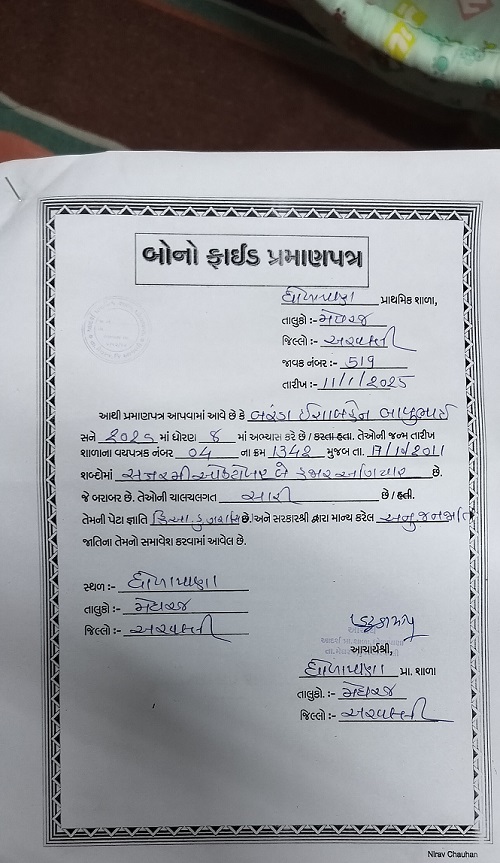 બોનો ફાઈડ પ્રમાણપત્ર
પ્રાથમિક શાળા,
તાલુકો :- મેઘરજ
જિલ્લો :- અરવલ્લી
જાવક નંબર :- 519
તારીખ :- 11/1/2025
આથી પ્રમાણપત્ર આપવામાં આવે છે કે
સને માં ધોરણ 8 માં અભ્યાસ કરે છે / કરતા હતા. તેઓની જન્મ તારીખ
શાળાના વયપત્રક નંબર 04 ના ક્રમ 1342 મુજબ તા.
શબ્દોમાં બે હજાર અગિયાર છે.
જે બરાબર છે. તેઓની ચાલચલગત સારી છે / હતી.
તેમની પેટા જ્ઞાતિ છે અને સરકારશ્રી દ્વારા માન્ય કરેલ અનુ જનજાતિ
જાતિના તેમનો સમાવેશ કરવામાં આવેલ છે.
સ્થળ :-
તાલુકો :- મેઘરજ
જિલ્લો :- અરવલ્લી
આચાર્યશ્રી,
પ્રા. શાળા
તાલુકો. :- મેઘરજ
જિલ્લો :- અરવલ્લી
Nirav Chauhan